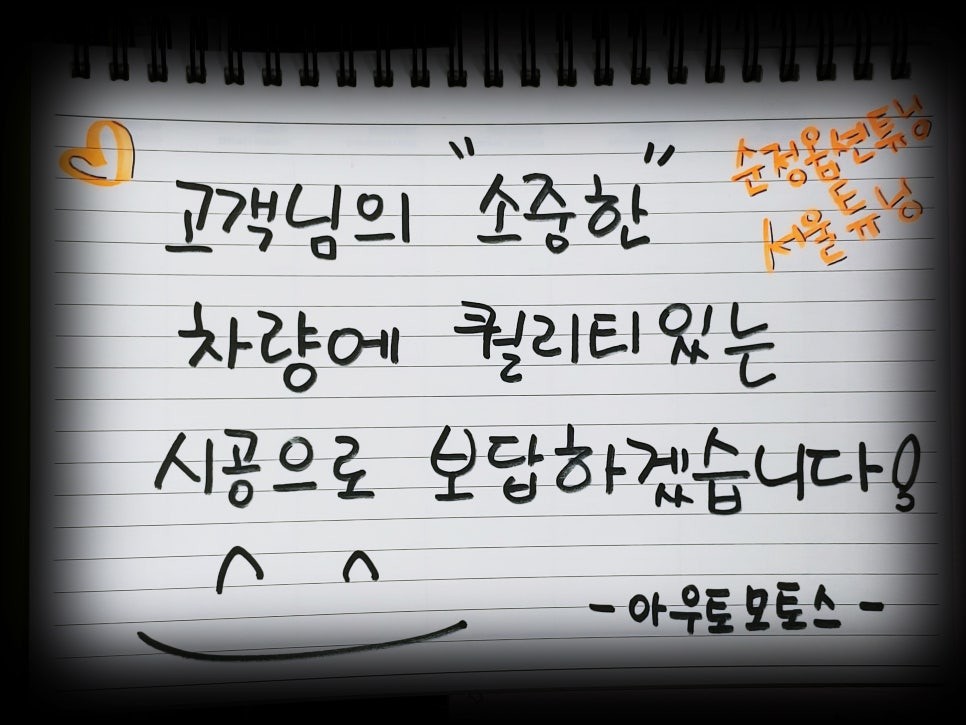 고객님의 "소중한"
차량에 퀄리티있는
시공으로 보답하겠습니다!
-아우토모토스-
순정옵션튜닝
서울튜닝